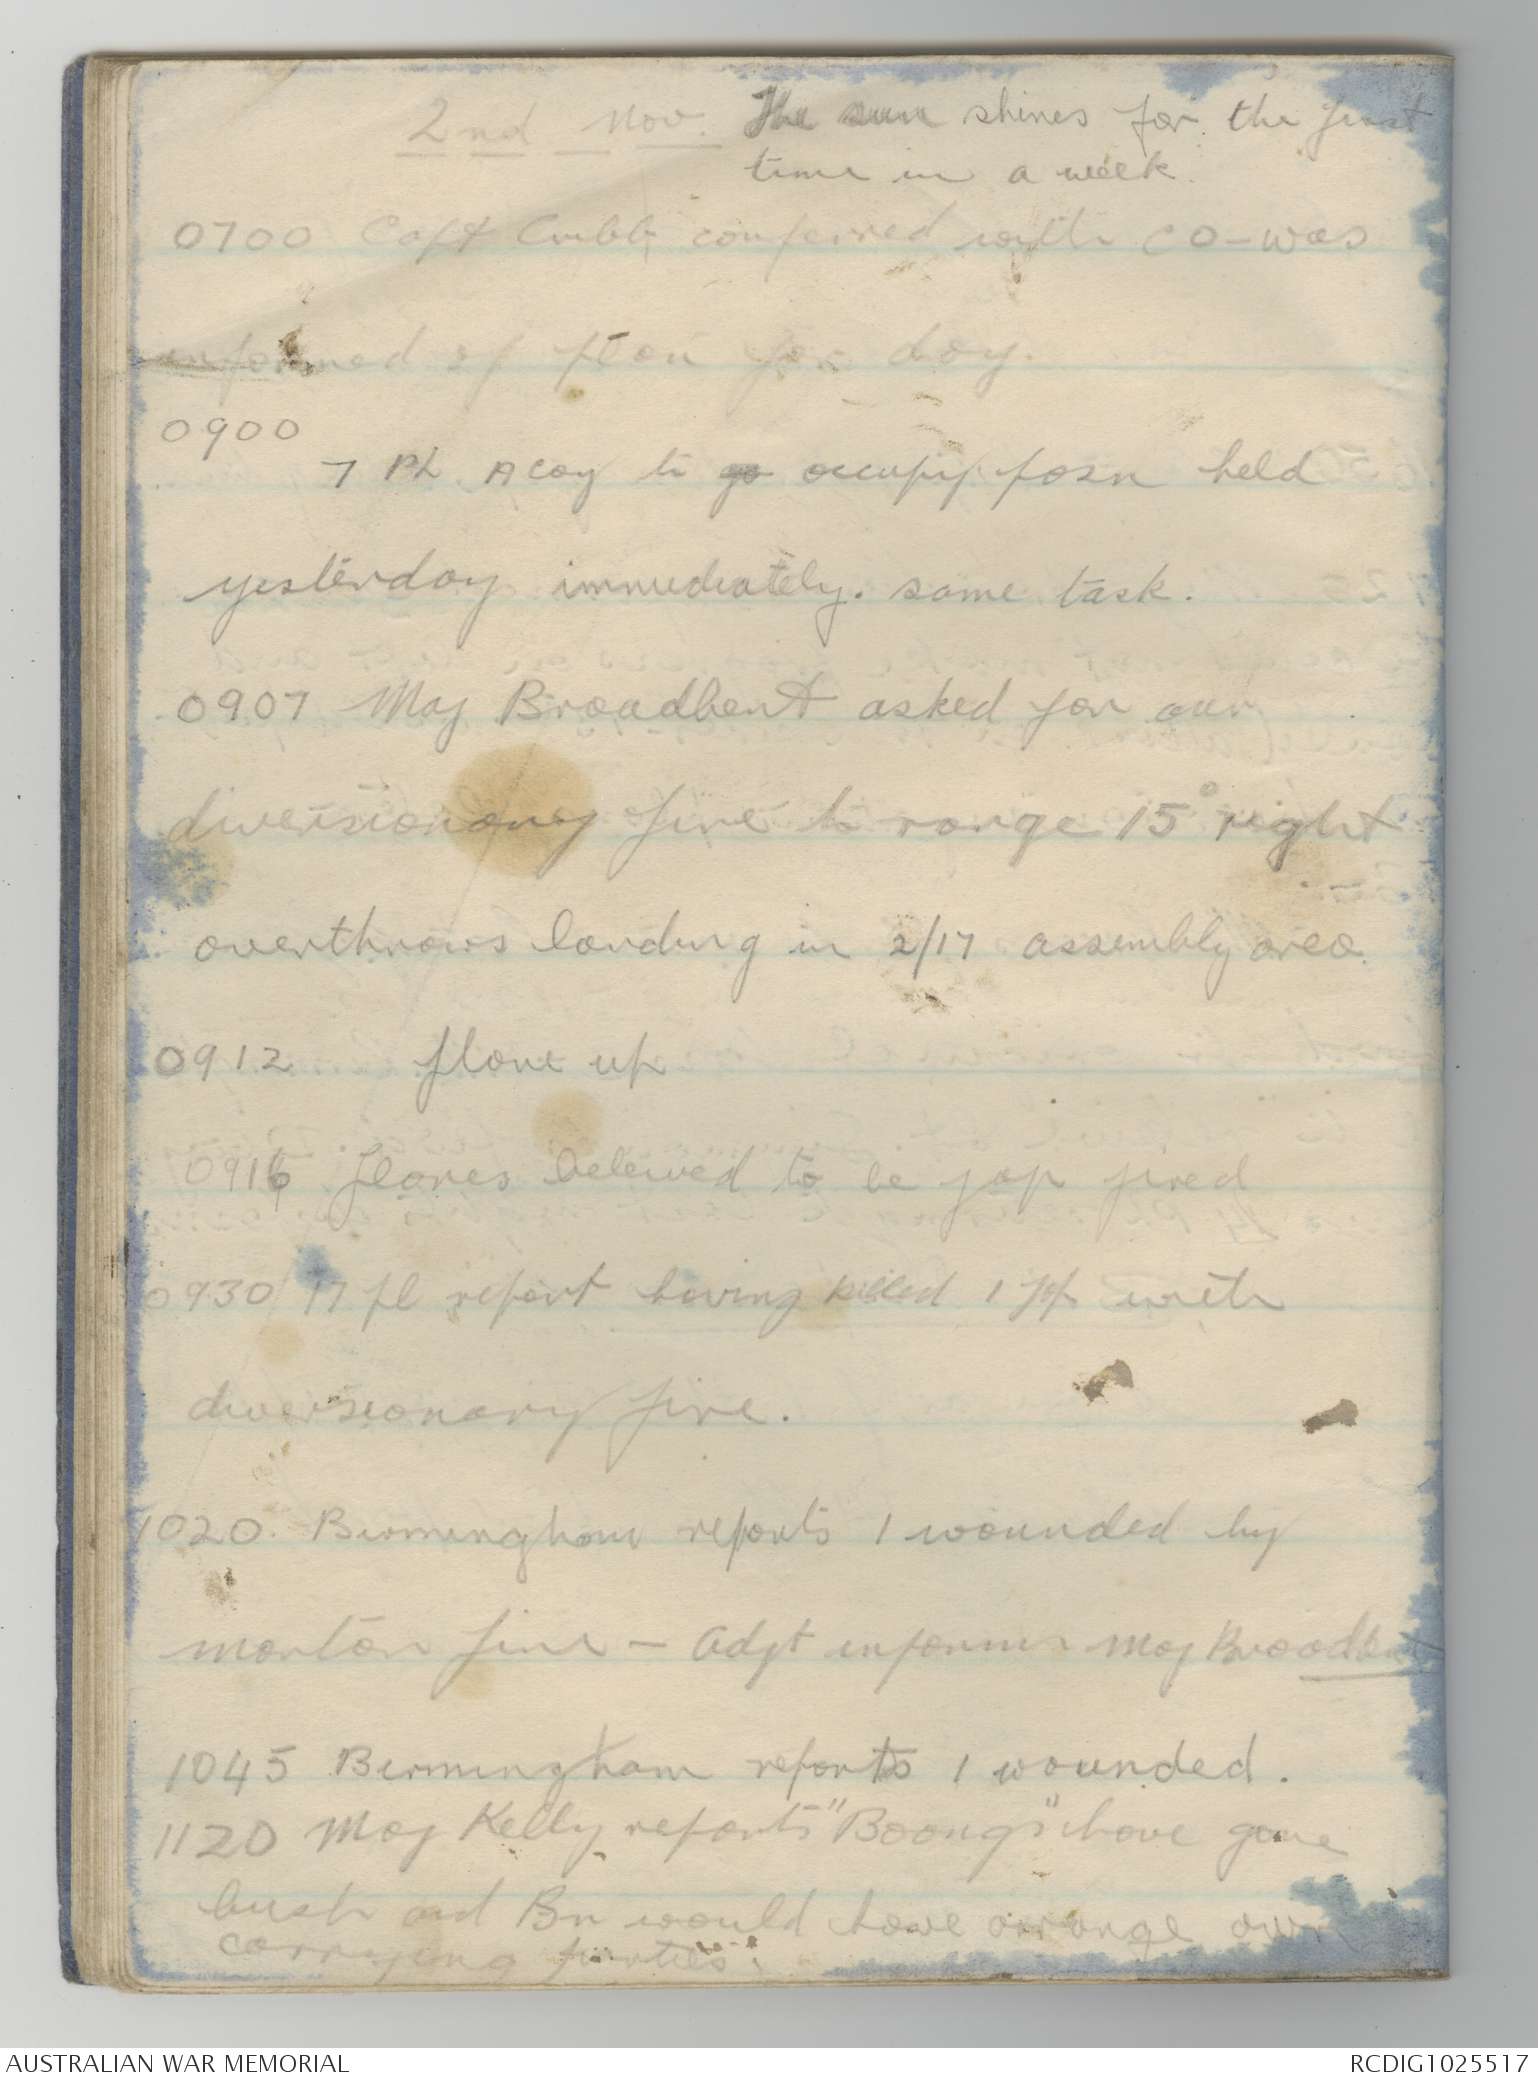 2nd Nov. The sun shines for the first
time in a week.
0700 Capt Cribb conferred with CO - was
informed of plan for day.
0900
7 Pl. A coy to go occupy posn held
yesterday immediately. same task.
0907 Maj Broadbent asked for our
diversionary fire to range 15° right
overthrows landing in 2/17 assembly area.
0912 flare up
0916 flares beleived to be jap fired
0930 17 pl report having killed 1 Jap with
diversionary fire.
1020. Birmingham reports 1 wounded by
mortar fire - Adjt informs Maj Broadbent
1045 Birmingham reports 1 wounded.
1120 Maj Kelly reports "Boongs" have gone
bush and Bn would have arrange own
carrying parties.
AUSTRALIAN WAR MEMORIAL
RCDIG1025517